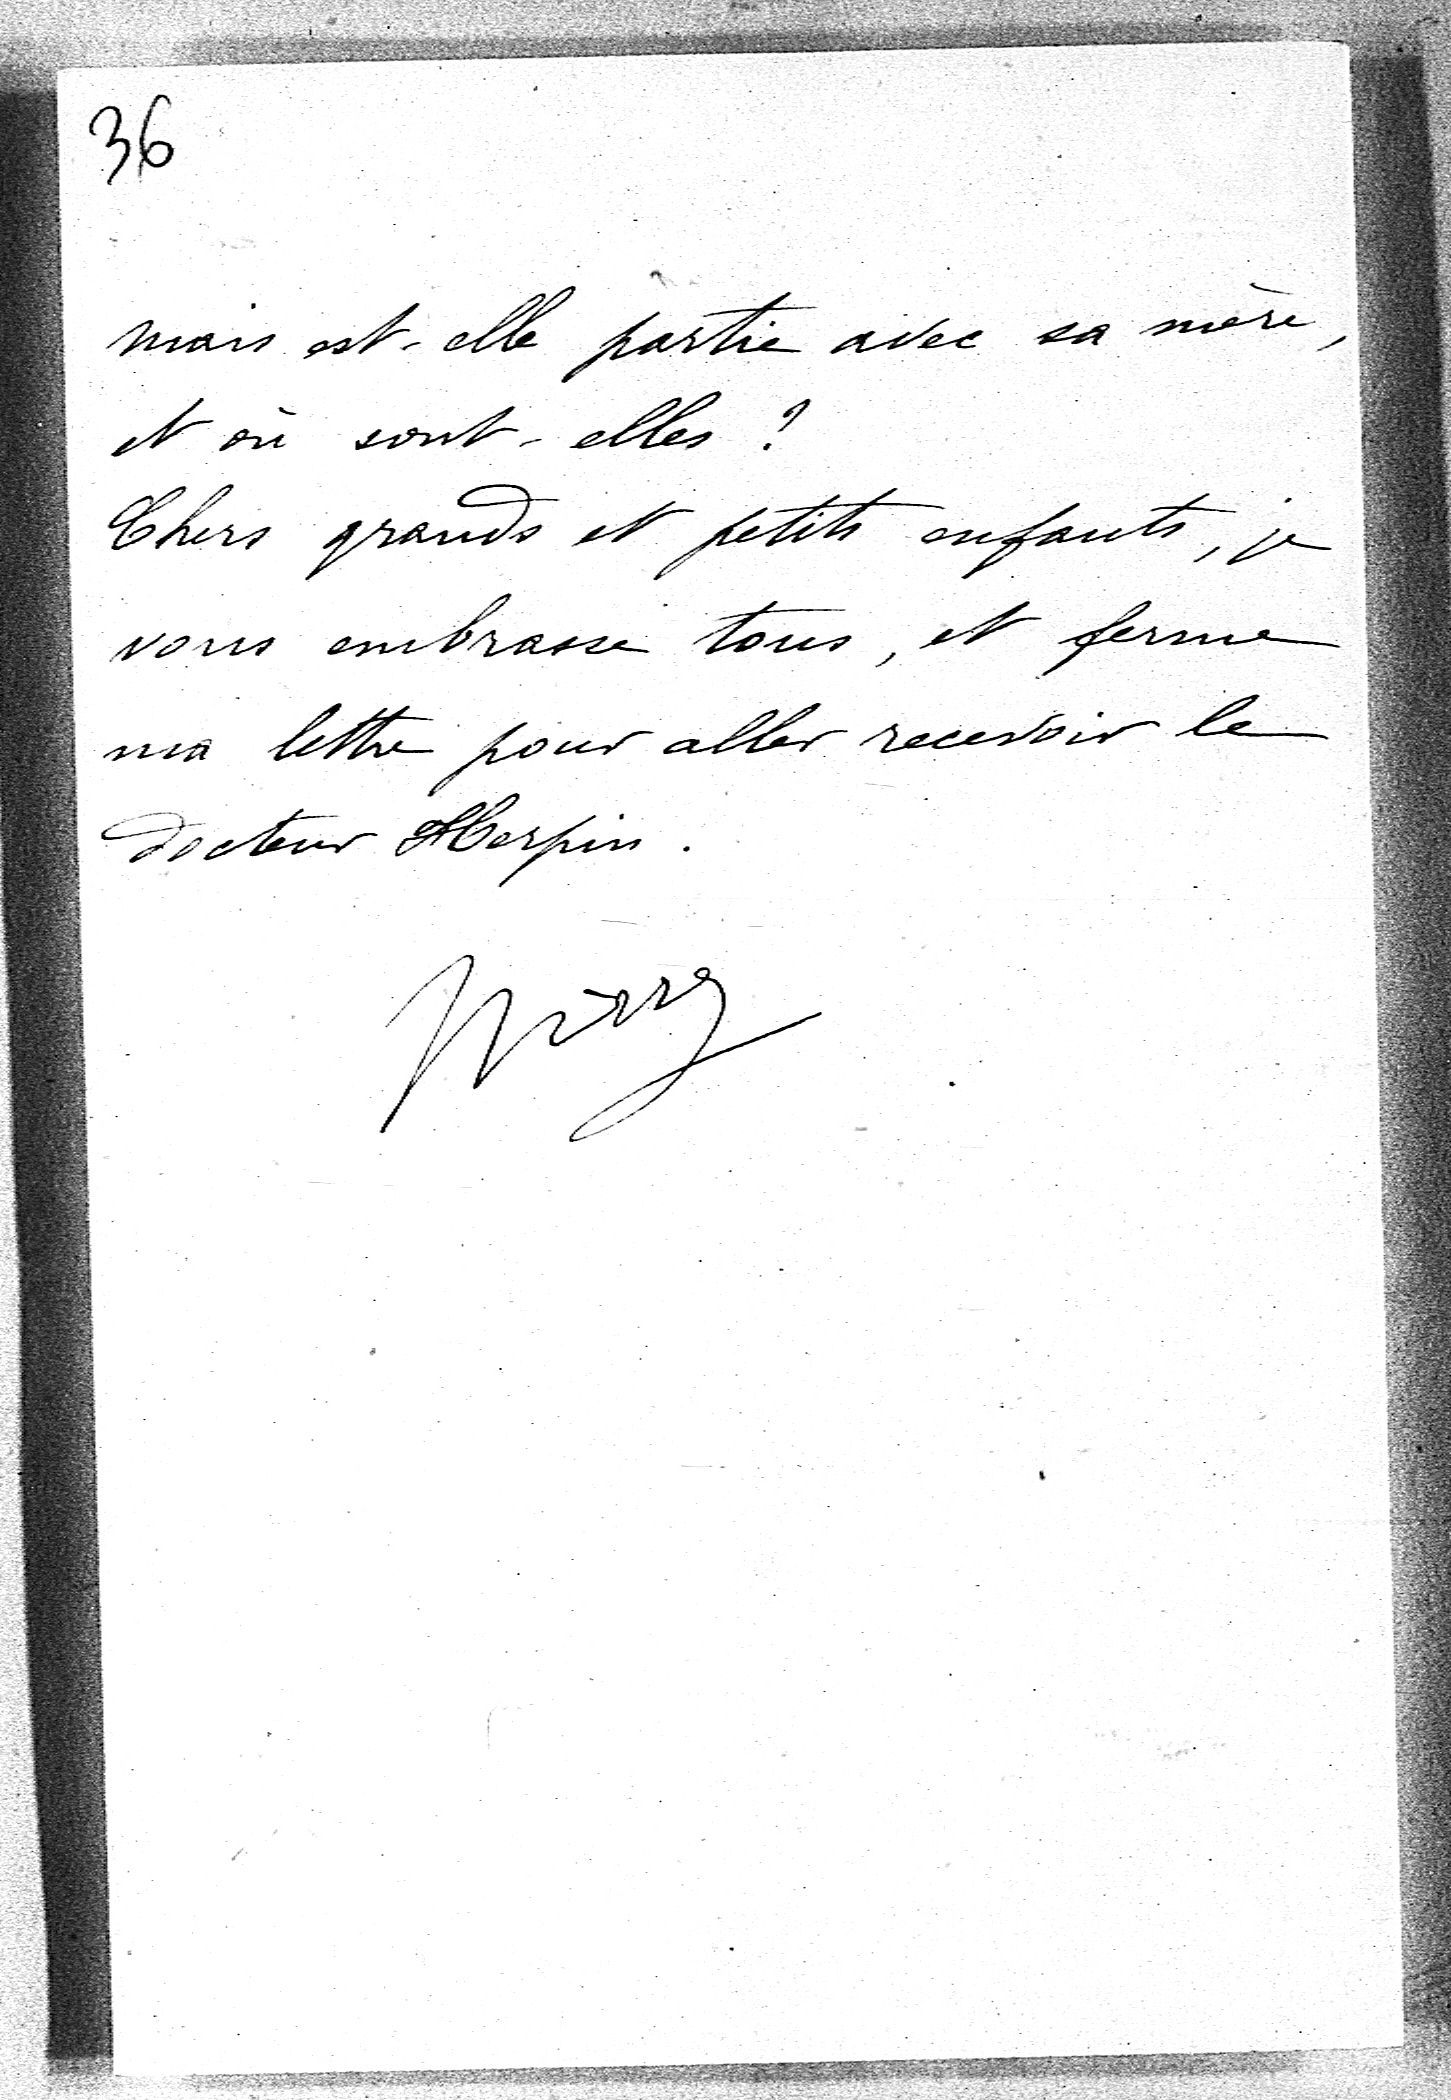 36
mais est-elle partie avec sa mère,
et où sont-elles ?
Chers grands et petits enfants, je
vous embrasse tous, et ferme
ma lettre pour aller recevoir le
docteur Herpin.